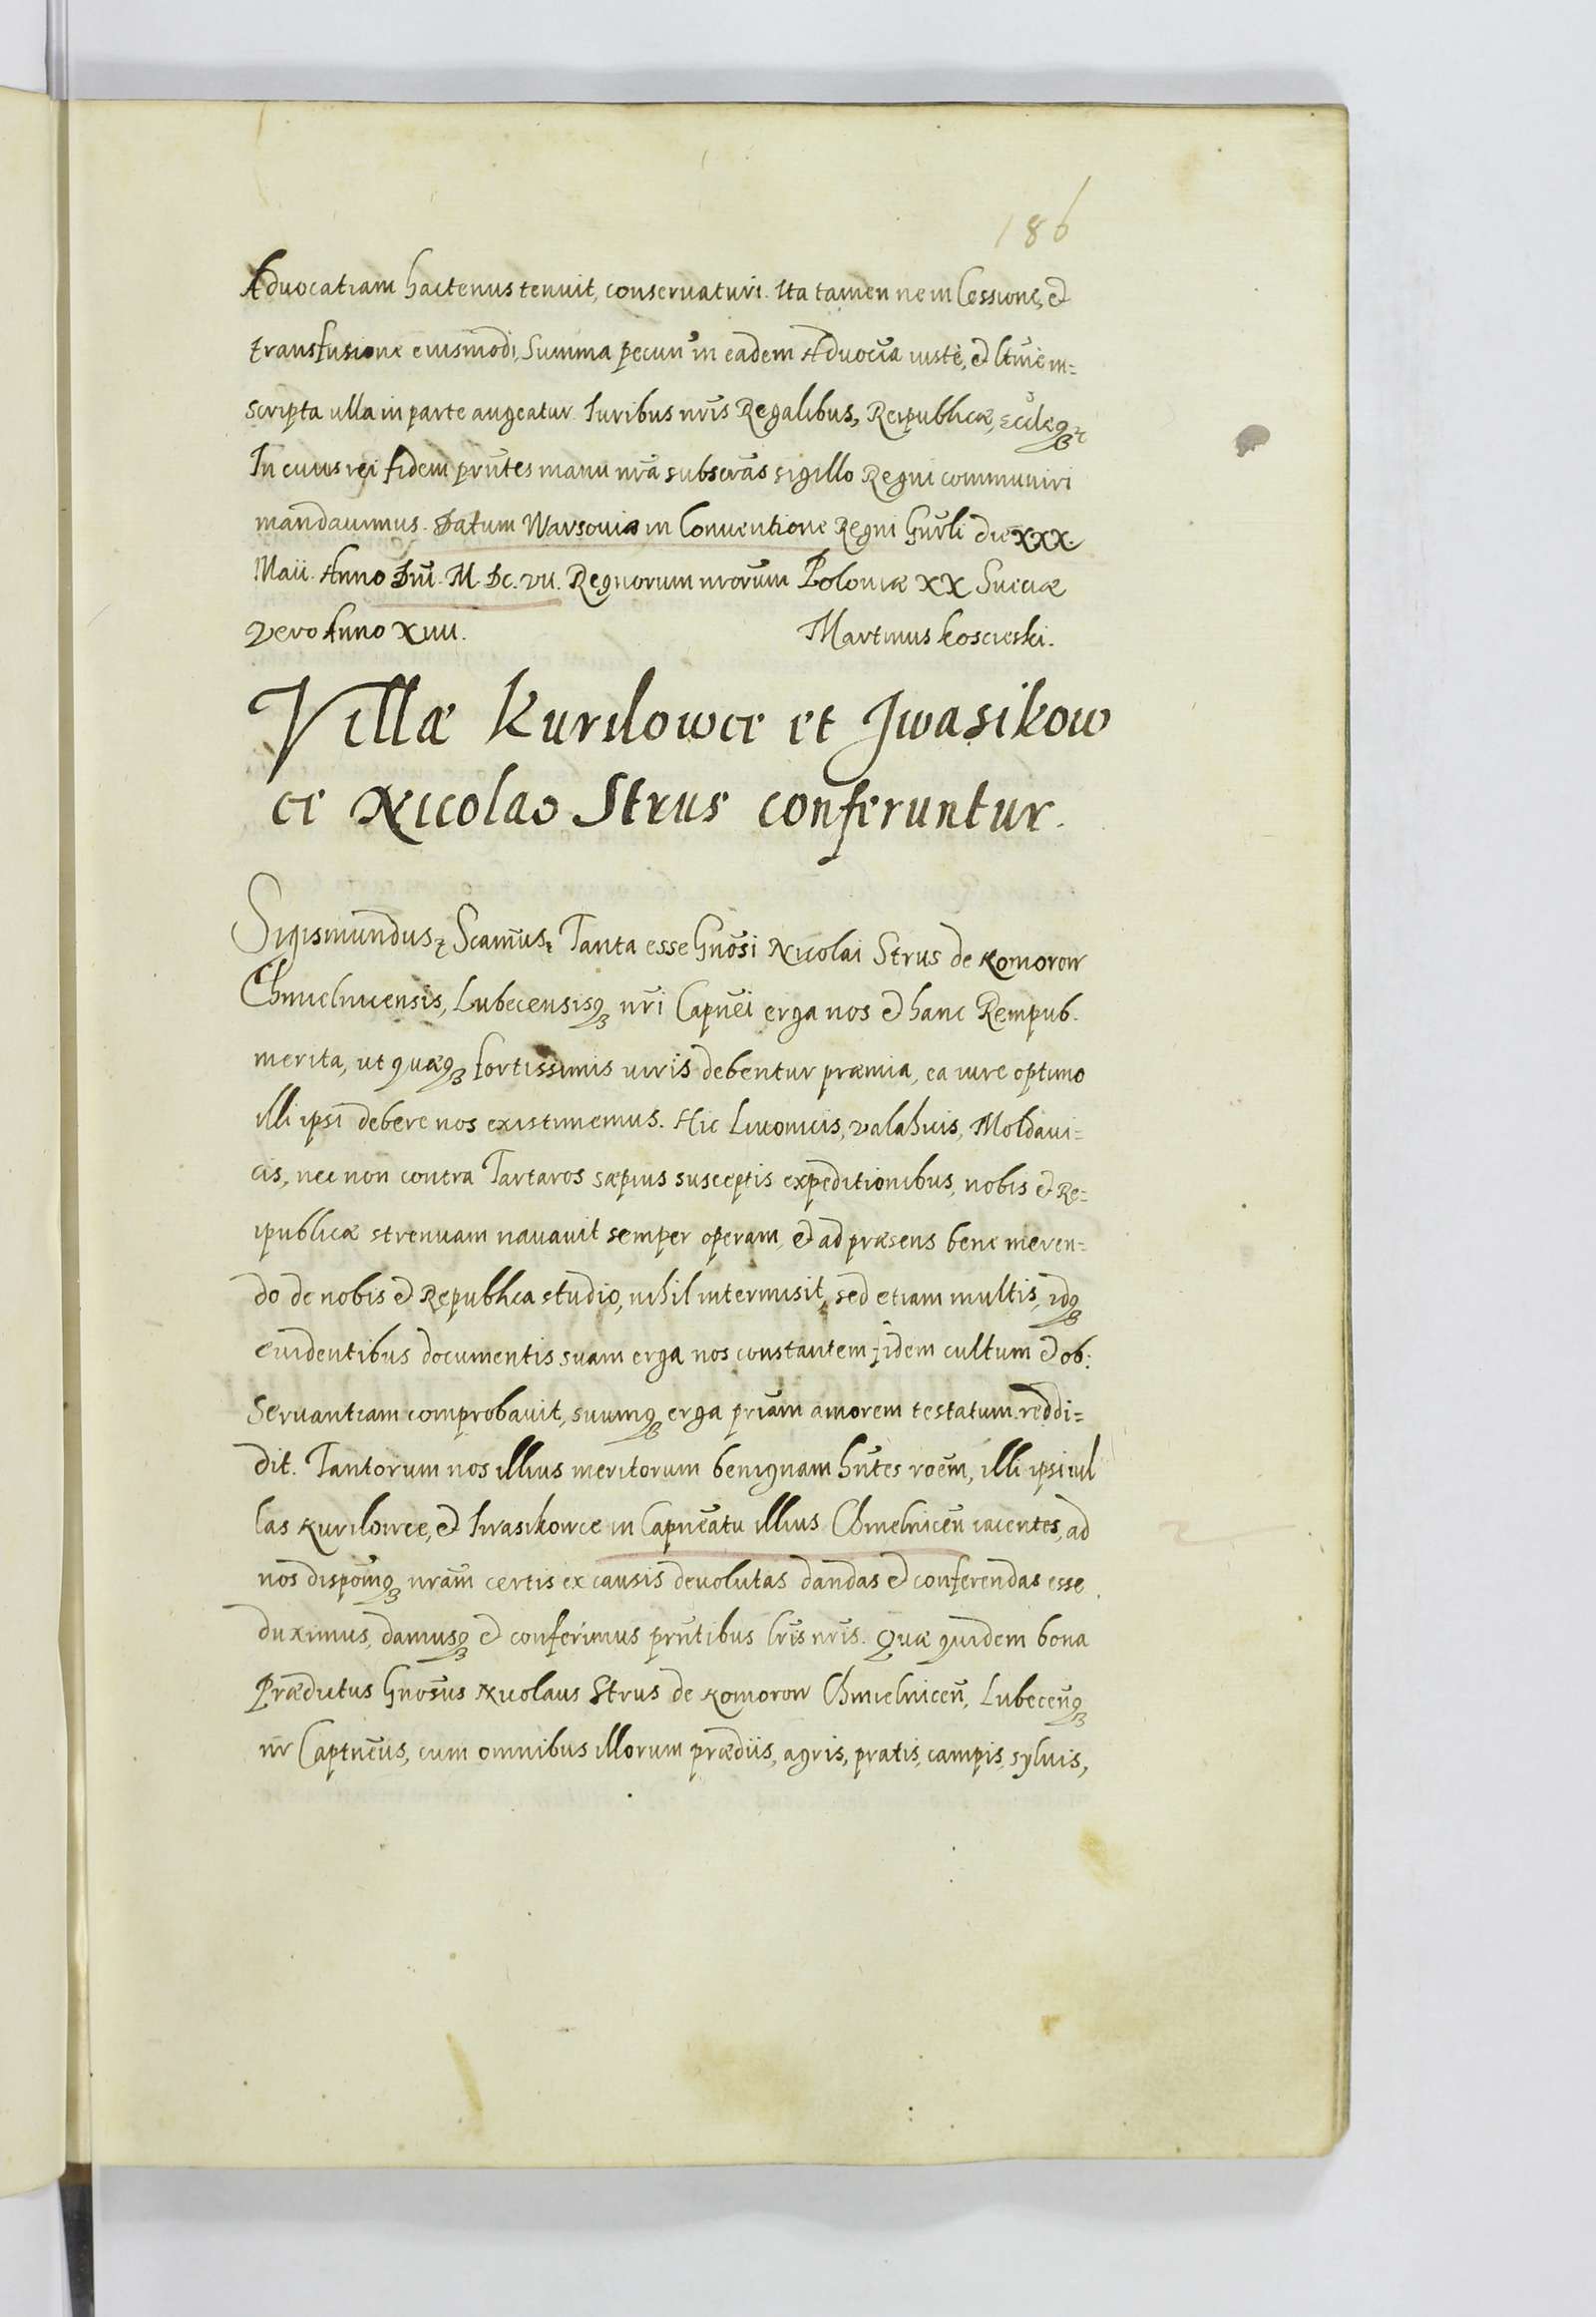 186
Aduocatiam hactenus tenuit, conseruaturi. Ita tamen ne in Cessione, et
transfusione eiusmodi, Summa pecun̄ in eadem Aduocīa iustè, et ltīmè in=
scripta ulla in parte augeatur. Iuribus nr̄is Regalibus, Reipublicæ, Ecclæq3 ꝛ
In cuius rei fidem prn̄tes manu nrā subscrās sigillo Regni communiri
mandauimus. Datum Warsouiæ in Conuentione Regni Gnr̄li die XXX.
Maii. Anno Dnī. M. DC. VII. Regnorum nrōrum Poloniæ XX Sueciæ
vero Anno XIIII. Martinus Koscieski.
Villæ Kurilowce et Jwasikow
ce Nicolao Strus conferuntur.
Sigismundus ꝛ Scāmus ꝛ Tanta esse Gnōsi Nicolai Strus de Komorow
Chmielnicensis, Lubecensisq3 nr̄i Capnēi erga nos et hanc Rempub.
merita, ut quæq3 fortissimis viris debentur præmia, ea iure optimo
illi ipsi debere nos existimemus. Hic Liuonicis, Valahicis, Moldaui=
cis, nec non contra Tartaros sæpius susceptis expeditionibus, nobis et Re=
ipublicæ strenuam nauauit semper operam, et ad præsens bene meren=
do de nobis et Republica studio, nihil intermisit, sed etiam multis, idq3
euidentibus documentis suam erga nos constantem fidem cultum et ob:
seruantiam comprobauit, suumq3 erga priām amorem testatum reddi=
dit. Tantorum nos illius meritorum benignam hn̄tes roēm, illi ipsi uil
las Kurilowce, et Iwasikowce in Capnēatu illius Chmelnicēn iacentes, ad
nos dispoīnq3 nrām certis ex causis deuolutas dandas et conferendas esse
duximus, damusq3 et conferimus prn̄tibus lr̄is nr̄is. Quæ quidem bona
Prædictus Gnōsus Nicolaus Strus de Komorow Chmielnicēn, Lubecēnq3
nr̄ Captnēus, cum omnibus illorum prædiis, agris, pratis, campis, syluis,